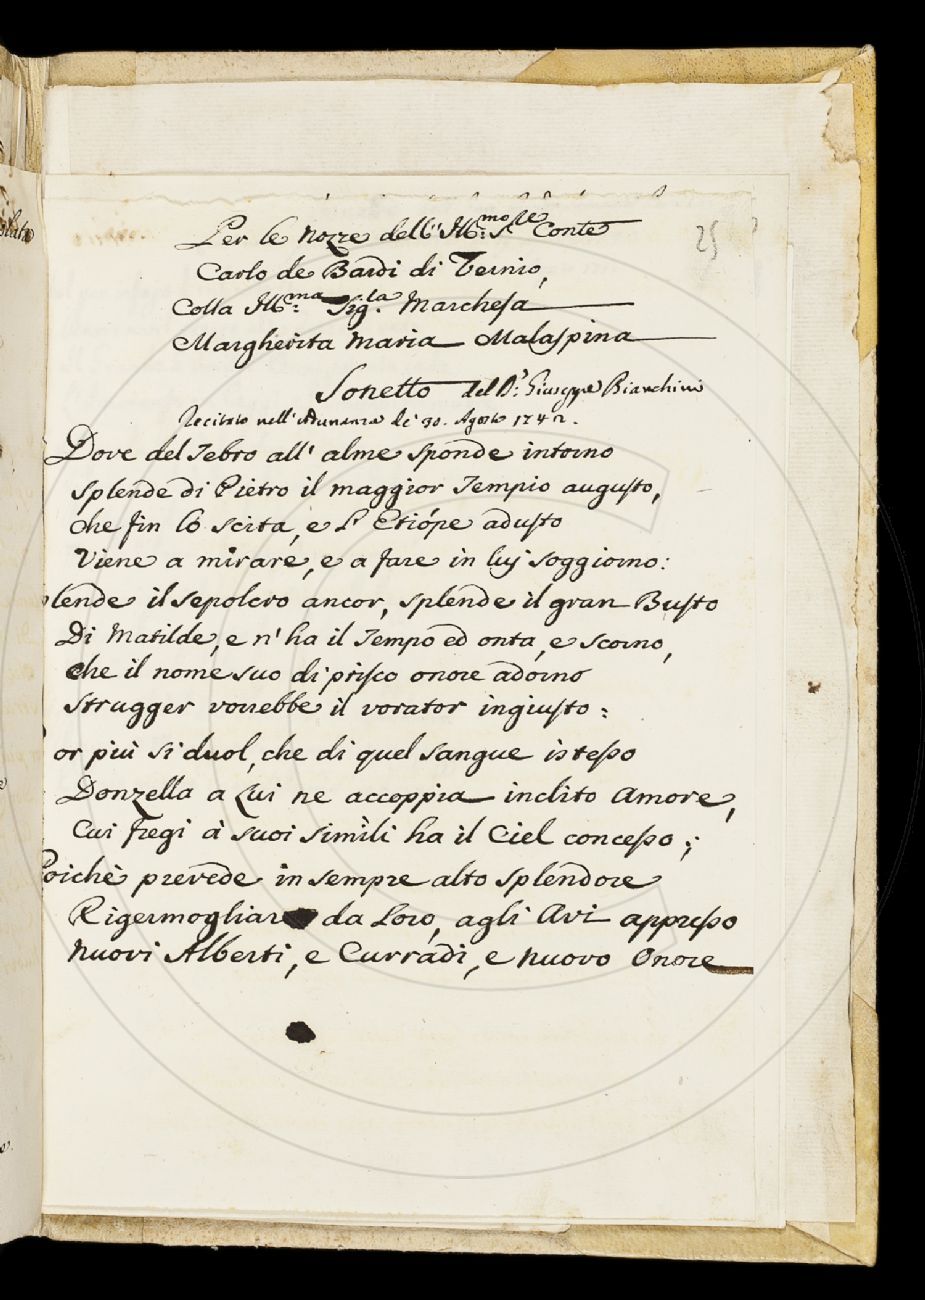 25
Per le Nozze dell' Ill:mo S:re Conte
Carlo de Bardi di Vernio,
Colla Ill:ma Sig:la Marchesa
Margherita Maria Malaspina
Sonetto del D:r Giuseppe Bianchini
Recitato nell' Adunanza li 30. Agosto 1742.
Dove del Tebro all' alme sponde intorno
Splende di Pietro il maggior Tempio augusto,
Che fin lo Scita, e l' Etiópe adusto
Viene a mirare, e a fare in lui soggiorno:
lende il sepolcro ancor, splende il gran Busto
Di Matilde, e n' ha il Tempo ed onta, e scorno,
Che il nome suo di prisco onore adorno
Strugger vorrebbe il vorator ingiusto:
or più si duol, che di quel sangue istesso
Donzella a Lui ne accoppia inclito Amore,
Cui fregi à suoi simili ha il Ciel concesso;
Poichè prevede in sempre alto splendore
Rigermogliar da Loro, agli Avi appresso
Nuovi Alberti, e Curradi, e nuovo Onore